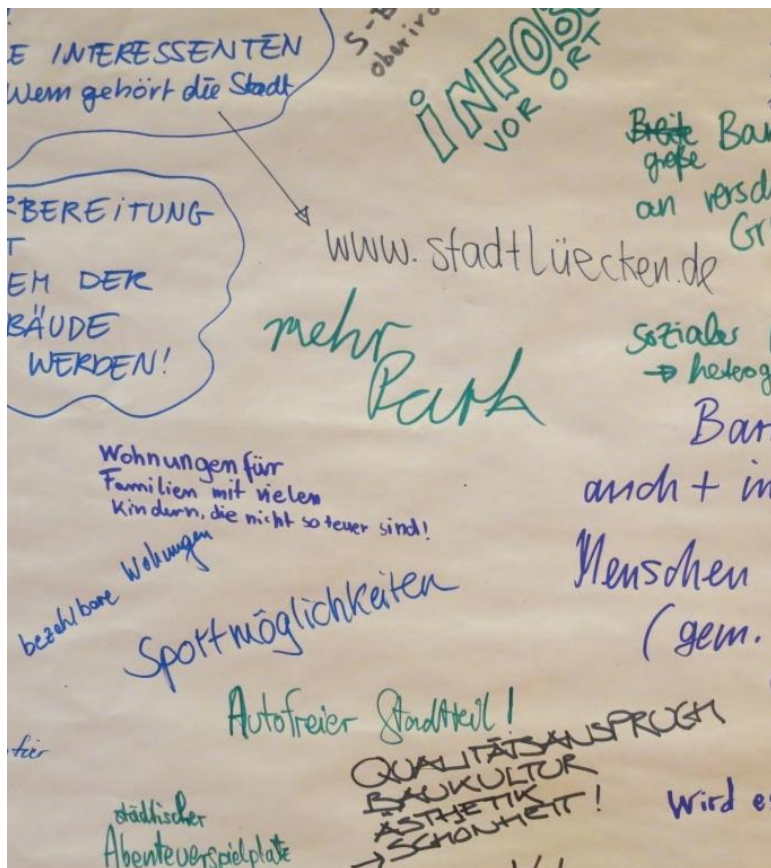 E INTERESSENTEN
Wem gehört die Stadt
S-B
oberird
INFOBO
VOR ORT
Breite Bar
große
an versch
Gr
RBEREITUNG
T
EM DER
BÄUDE
WERDEN!
www.stadtlüecken.de
mehr
Park
soziales
→ heterog
Bar
auch + in
Menschen
(gem.
Wohnungen für
Familien mit vielen
Kindern, die nicht so teuer sind!
bezahlbare Wohungen
Sportmöglichkeiten
Autofreier Stadtteil!
für
QUALITÄTSANSPRUCH
BAUKULTUR
ÄSTHETIK
→ SCHÖNHEIT!
Wird e
städtischer
Abenteuerspielplatz